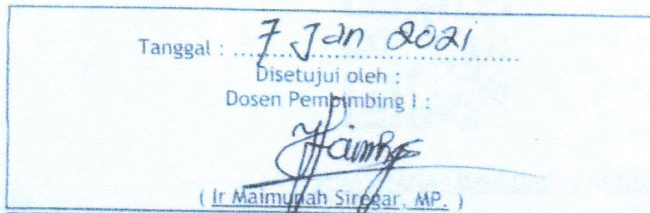 Tanggal : 7 Jan 2021
Disetujui oleh :
Dosen Pembimbing I :
( Ir Maimunah Siregar, MP. )